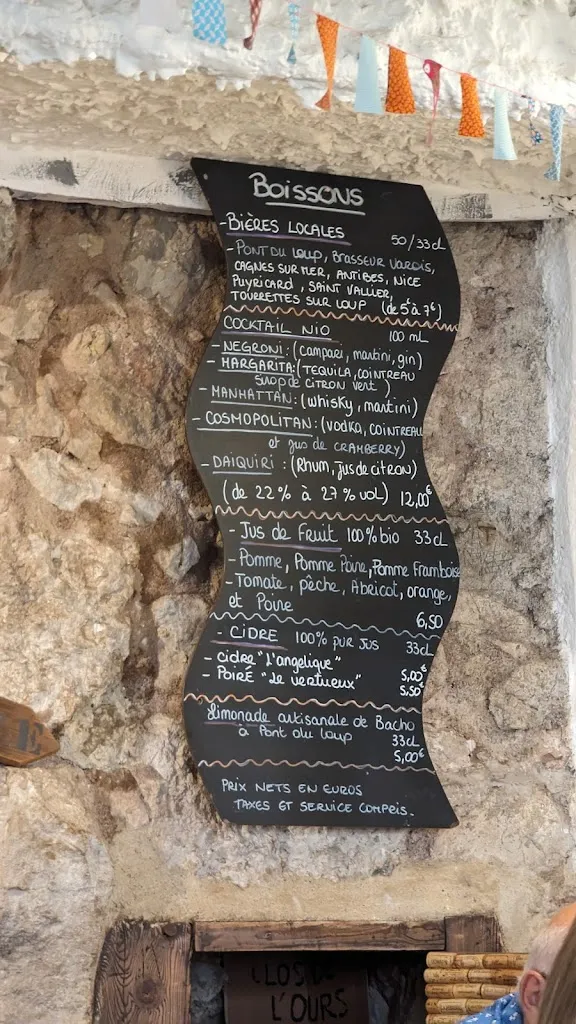 Boissons
- BIÈRES LOCALES 50/33cl
- PONT DU LOUP, BRASSEUR VAROIS,
CAGNES SUR MER, ANTIBES, NICE
PUYRICARD, SAINT VALLIER,
TOURRETTES SUR LOUP (de 5€ à 7€)
COCKTAIL NIO 100 mL
- NEGRONI: (campari, martini, gin)
- MARGARITA: (TEQUILA, COINTREAU
SIROP de CITRON vert)
- MANHATTAN: (whisky, martini)
- COSMOPOLITAN: (vodka, COINTREAU
et jus de CRAMBERRY)
- DAIQUIRI : (Rhum, Jus de citron)
(de 22% à 27% vol) 12,00€
- Jus de Fruit 100% bio 33cl
- Pomme, Pomme Poire, Pomme Framboise
- Tomate, pêche, Abricot, orange,
et Poire 6,50
- CIDRE 100% PUR JUS 33cl
- cidre "L'angelique" 5,00€
- POIRÉ "Le vertueux" 5,50€
Limonade artisanale de Bacho
à Pont du loup 33cl
5,00€
PRIX NETS EN EUROS
TAXES ET SERVICE COMPRIS.
E
CLOS DE
L'OURS